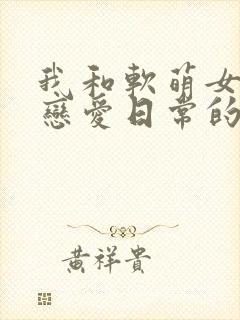 我和軟萌女
戀愛日常的
黃祥貴